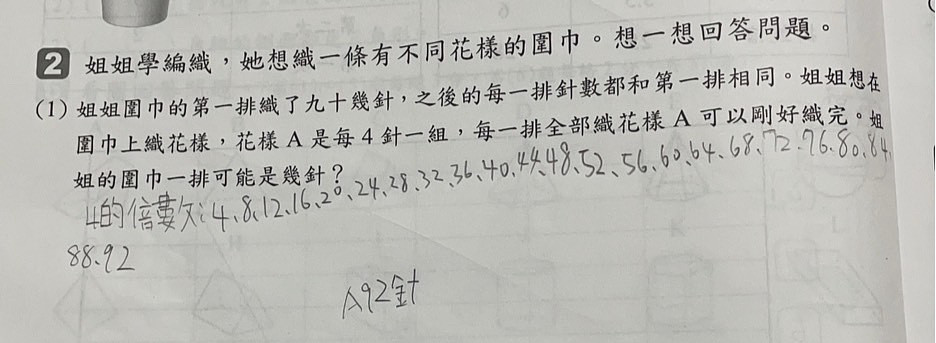 2 姐姐學編織,她想織一條有不同花樣的圍巾。想一想回答問題。
(1) 姐姐圍巾的第一排織了九十幾針,之後的每一排針數都和第一排相同。姐姐想在
圍巾上織花樣,花樣 A 是每 4 針一組,每一排全部織花樣 A 可以剛好織完。姐
姐的圍巾一排可能是幾針?
4的倍數:4、8、12、16、20、24、28、32、36、40、44、48、52、56、60、64、68、72、76、80、84、
88、92
A92針